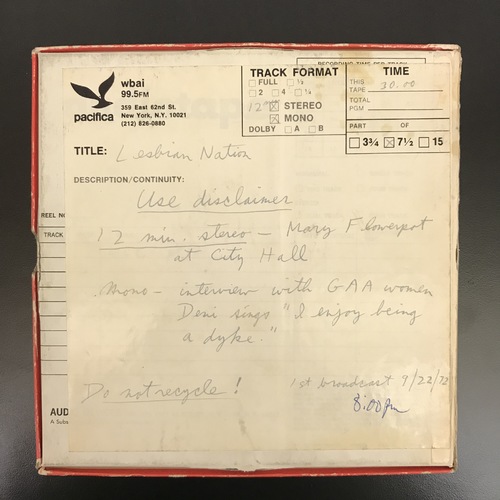 RECORDING TIME PER TRACK
wbai
99.5FM
pacifica
359 East 62nd St.
New York, N.Y. 10021
(212) 826-0880
TRACK FORMAT
FULL ½
2 4 ¼
12" STEREO
MONO
DOLBY A B
TIME
THIS TAPE 30.00
TOTAL PGM
PART OF
3¾ 7½ 15
TITLE: Lesbian Nation
DESCRIPTION/CONTINUITY:
Use disclaimer
REEL NO
TRACK
12 min. stereo – Mary Flowerpot
at City Hall
Mono – interview with GAA women
Deni sings "I enjoy being
a dyke."
Do not recycle!
1st broadcast 9/22/72
8:00 pm
AUD
A Subs